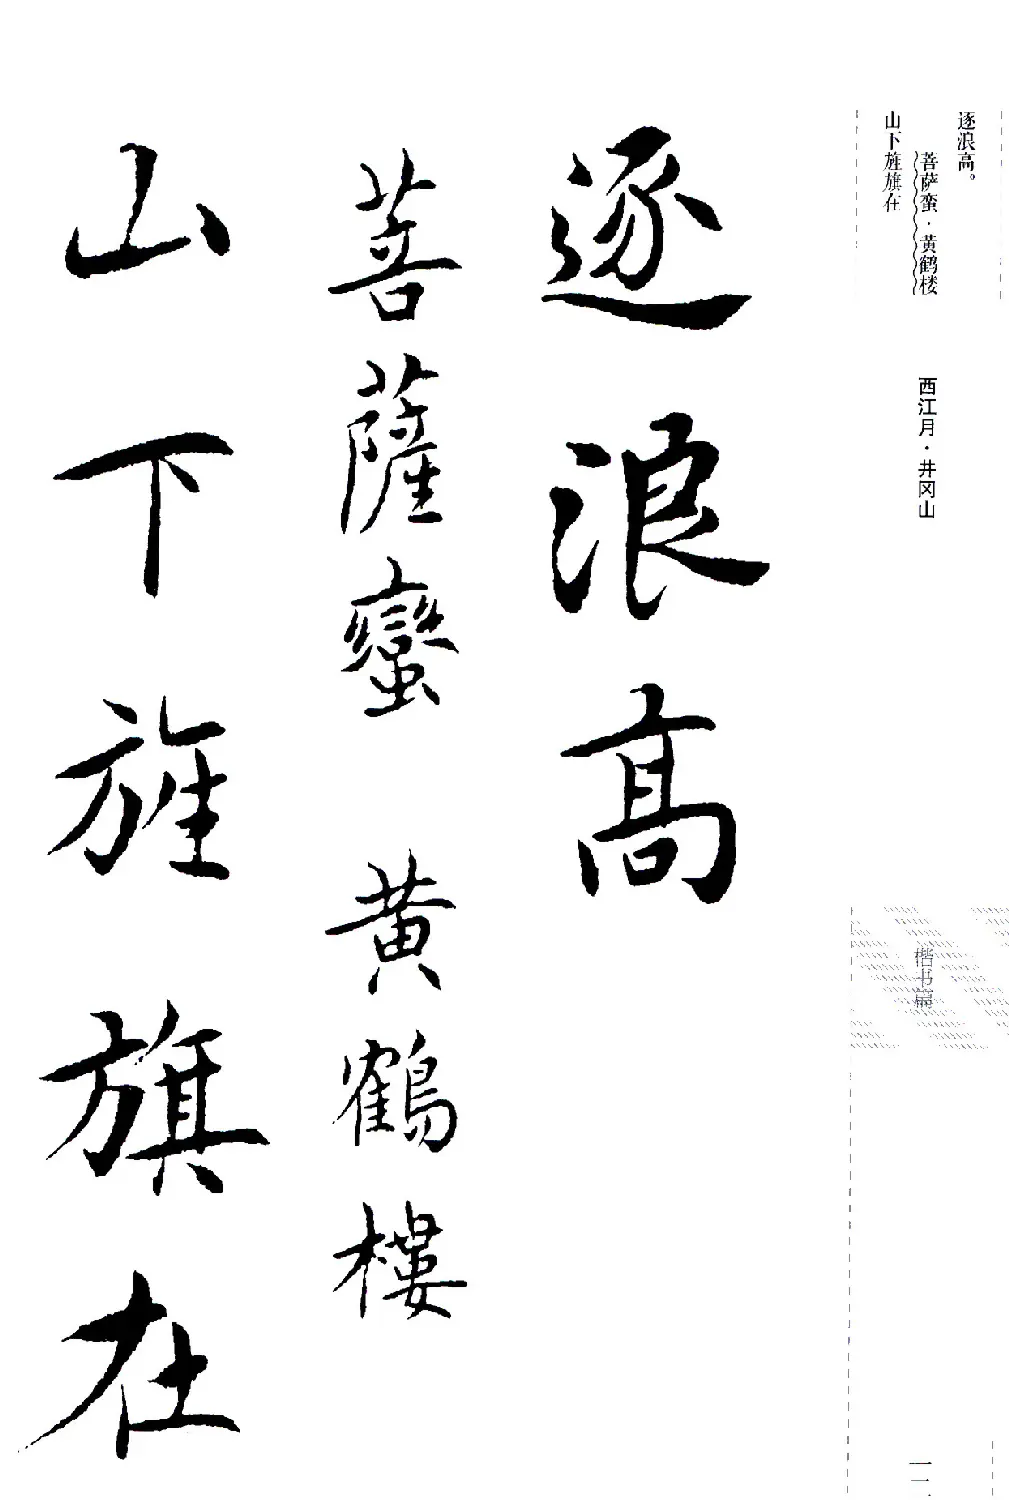 逐浪高。
菩萨蛮·黄鹤楼
西江月·井冈山
山下旌旗在
楷书篇
逐浪高
菩薩蠻 黄鶴樓
山下旌旗在